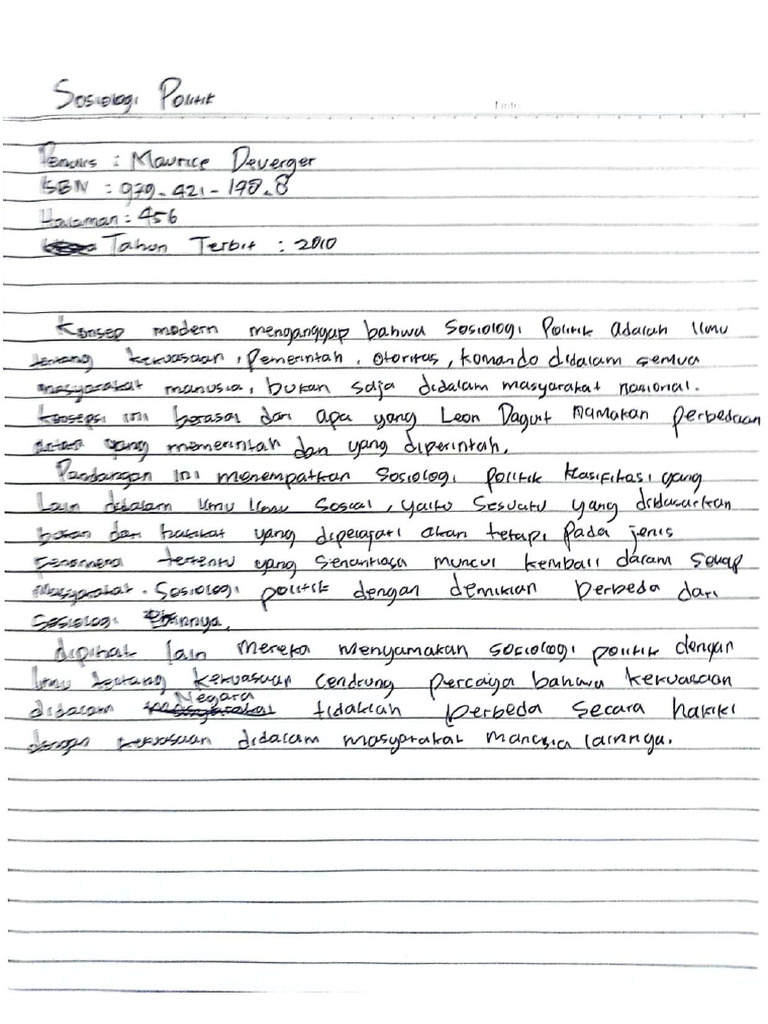 Sosiologi Politik
Penulis : Maurice Deverger
ISBN : 979-421-198-8
Halaman : 456
Tahun Terbit : 2010
Konsep modern menganggap bahwa Sosiologi Politik adalah Ilmu
tentang kekuasaan, Pemerintah, Otoritas, Komando didalam semua
masyarakat manusia, bukan saja didalam masyarakat nasional.
Konsepsi ini berasal dari apa yang Leon Daguit Namakan perbedaan
antara yang memerintah dan yang diperintah.
Pandangan ini menempatkan Sosiologi politik klasifikasi yang
Lain didalam Ilmu Ilmu Sosial, yaitu Sesuatu yang didasarkan
bukan dari hakikat yang dipelajari akan tetapi pada jenis
fenomena tertentu yang senantiasa muncul kembali dalam setiap
masyarakat. Sosiologi politik dengan demikian berbeda dari
Sosiologi lainnya.
dipihal lain mereka menyamakan sosiologi politik dengan
Ilmu tentang kekuasaan Cendrung percaya bahwa kekuasaan
didalam Negara tidaklah berbeda secara hakiki
dengan kekuasaan didalam masyarakat manusia lainnya.